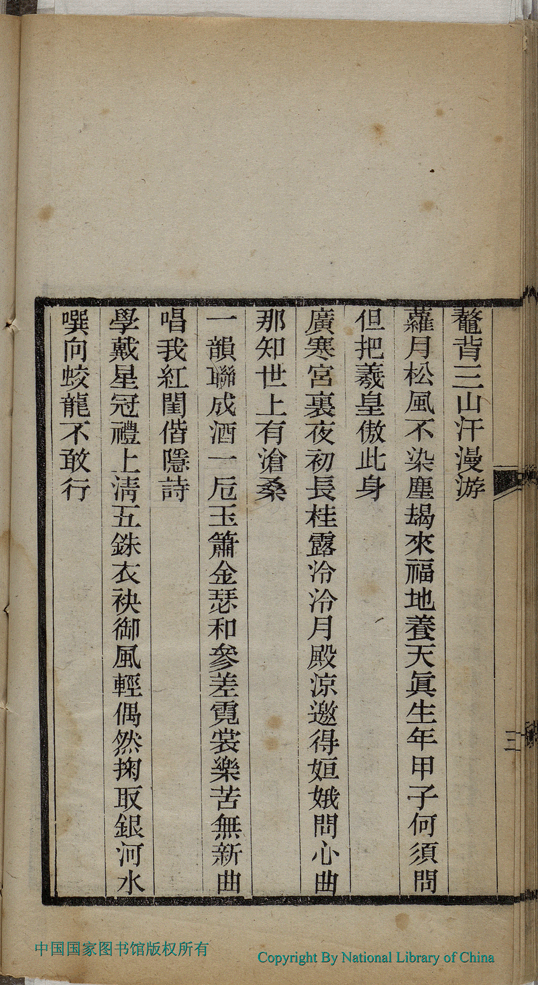 鼇背三山汗漫游
蘿月松風不染塵朅來福地養天眞生年甲子何須問
但把羲皇傲此身
廣寒宮裏夜初長桂露泠泠月殿涼邀得姮娥問心曲
那知世上有滄桑
一韻聯成酒一卮玉簫金瑟和參差霓裳樂苦無新曲
唱我紅閨偕隱詩
學戴星冠禮上清五銖衣袂御風輕偶然掬取銀河水
噀向蛟龍不敢行
三
中国国家图书馆版权所有
Copyright By National Library of China